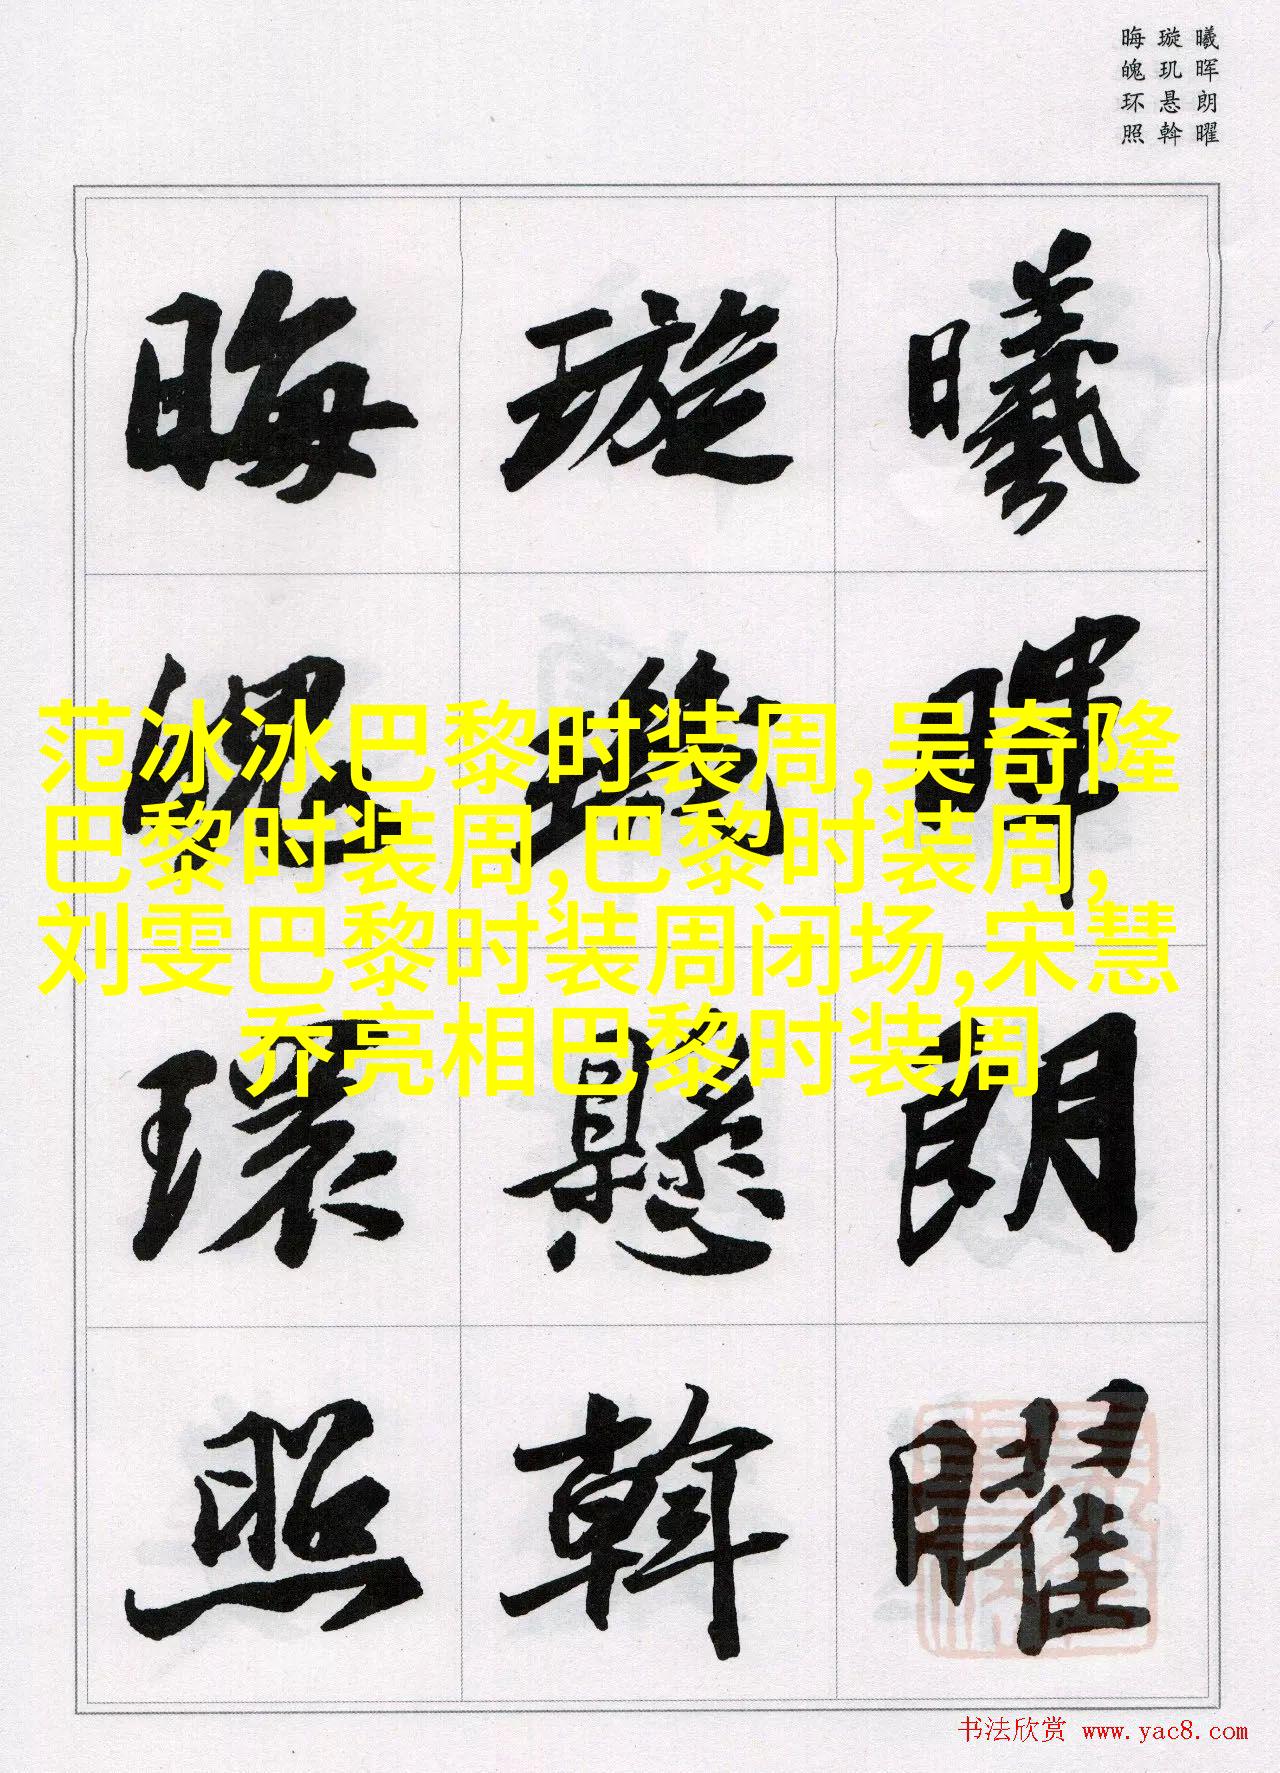 曦晖朗曜
璇玑悬斡
晦魄环照
曦暉朗曜
璇璣懸斡
晦魄環照
范冰冰巴黎时装周,吴奇隆
巴黎时装周,巴黎时装周,
刘雯巴黎时装周闭场,宋慧
乔亮相巴黎时装周
书法欣赏 www.yac8.com